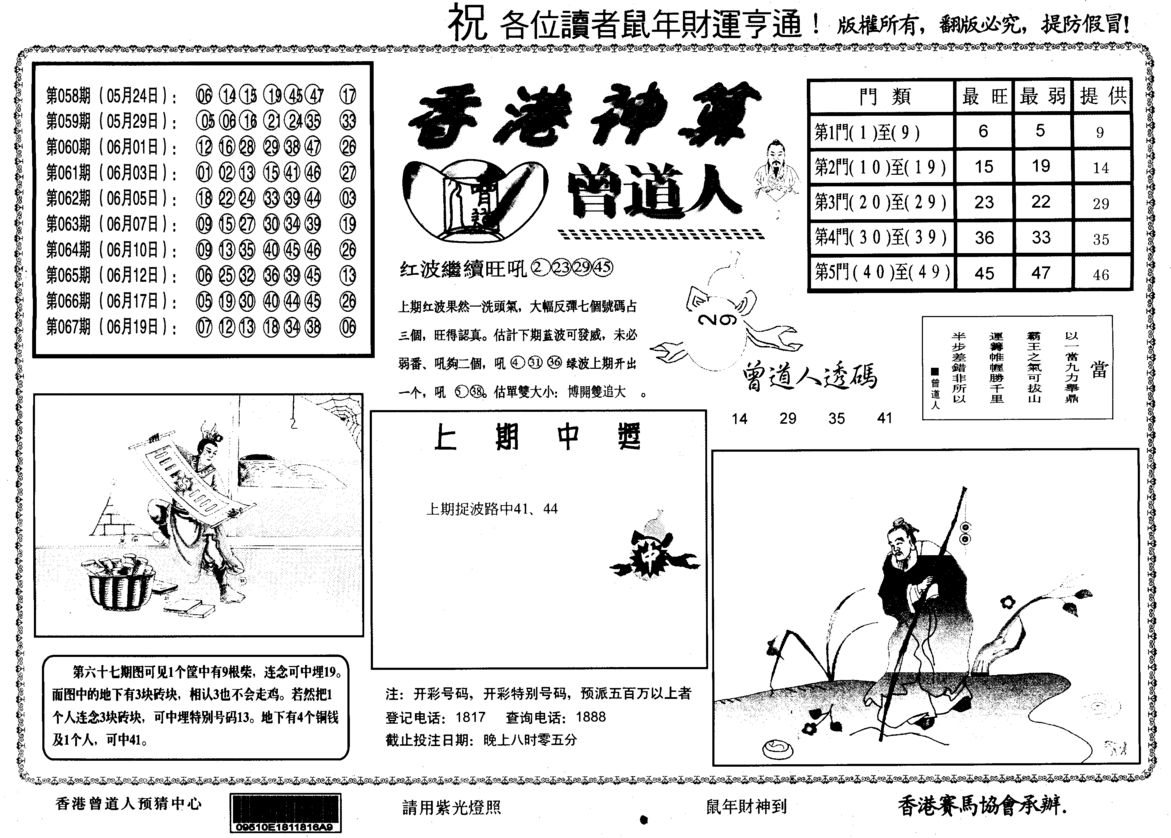 祝 各位讀者鼠年財運亨通！ 版權所有，翻版必究，提防假冒！
第058期（05月24日）： 06 14 15 19 45 47 17
第059期（05月29日）： 05 06 16 21 24 35 33
第060期（06月01日）： 12 16 28 29 38 47 26
第061期（06月03日）： 01 02 13 15 41 46 27
第062期（06月05日）： 18 22 24 33 39 44 03
第063期（06月07日）： 09 15 27 30 34 39 19
第064期（06月10日）： 09 13 35 40 45 46 26
第065期（06月12日）： 06 25 32 36 39 45 13
第066期（06月17日）： 05 19 30 40 44 45 26
第067期（06月19日）： 07 12 13 18 34 38 06
香港神算
曾道人
門類 最旺 最弱 提供
第1門(1)至(9) 6 5 9
第2門(10)至(19) 15 19 14
第3門(20)至(29) 23 22 29
第4門(30)至(39) 36 33 35
第5門(40)至(49) 45 47 46
红波繼續旺吼②㉓㉙㊺
上期红波果然一洗頭氣，大幅反彈七個號碼占
三個，旺得認真。估計下期蓝波可發威，未必
弱番、吼夠二個，吼④㉛㊱绿波上期开出
一个，吼⑤㊳。估單雙大小：博開雙追大 。
29
曾道人透碼
14 29 35 41
當
以一當九力舉鼎
霸王之氣可拔山
運籌帷幄勝千里
半步差錯非所以
■曾道人
上期中獎
上期捉波路中41、44
中
第六十七期图可见1个筐中有9根柴，连念可中埋19。
而图中的地下有3块砖块，相认3也不会走鸡。若然把1
个人连念3块砖块，可中埋特别号码13。地下有4个铜钱
及1个人，可中41。
注：开彩号码，开彩特别号码，预派五百万以上者
登记电话：1817 查询电话：1888
截止投注日期：晚上八时零五分
香港曾道人预猜中心
09510E1811816A9
請用紫光燈照
鼠年財神到
香港賽馬協會承辦.